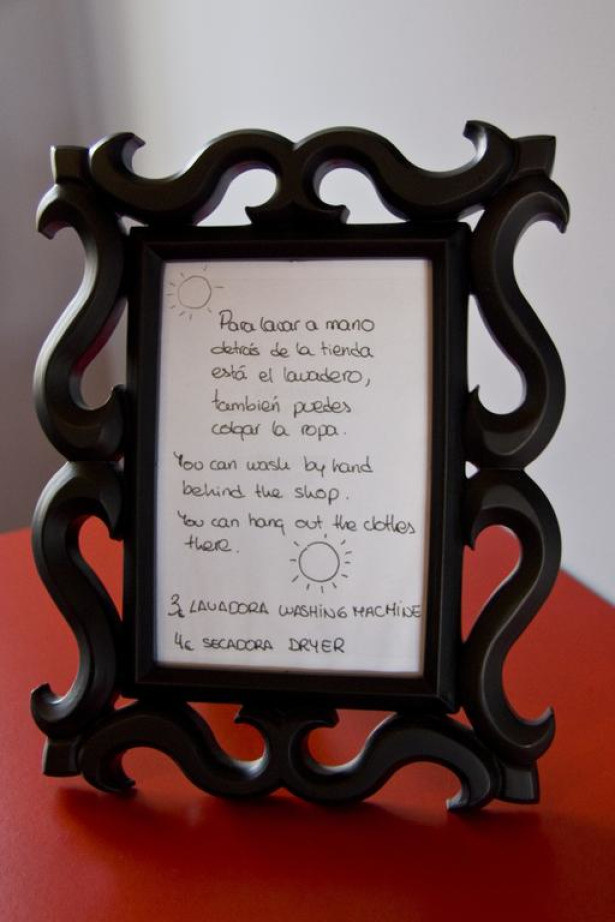 Para lavar a mano
detrás de la tienda
está el lavadero,
también puedes
colgar la ropa.
You can wash by hand
behind the shop.
You can hang out the clothes
there.
3€ LAVADORA WASHING MACHINE
4€ SECADORA DRYER